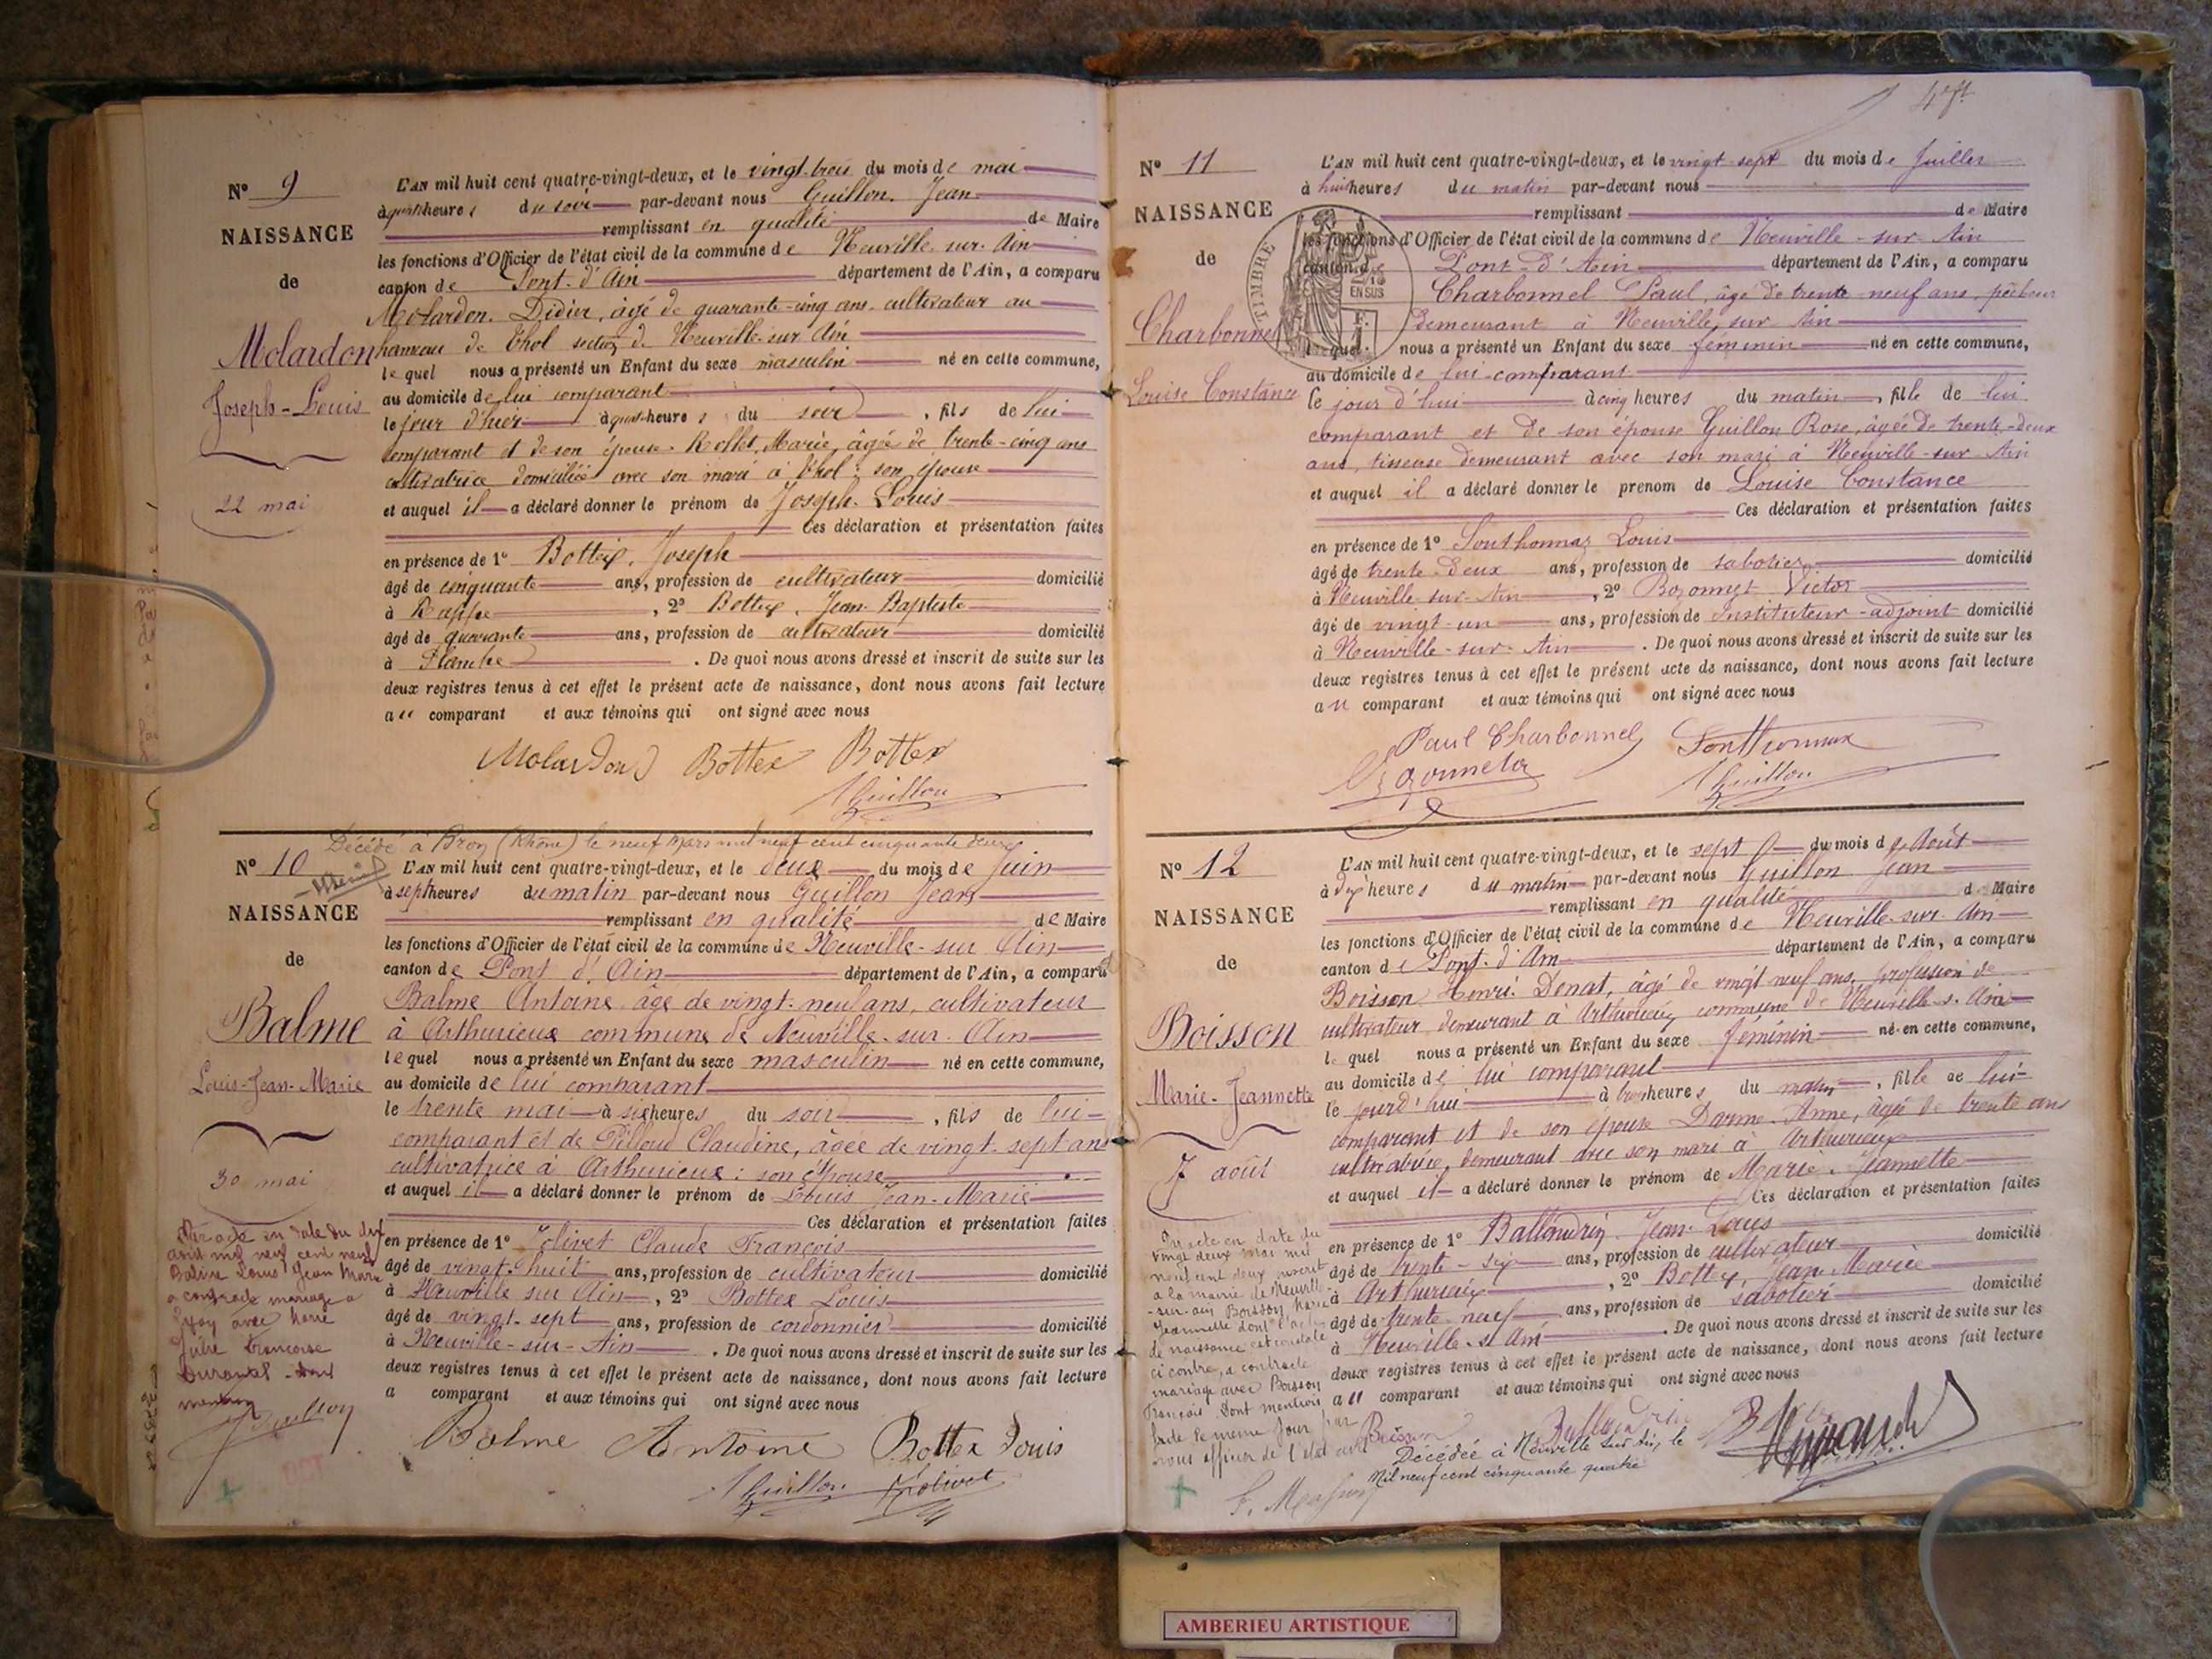 N° 9
NAISSANCE
de
Molardon
Joseph-Louis
22 mai
L'AN mil huit cent quatre-vingt-deux, et le vingt-trois du mois de mai
à quatre heures du soir par-devant nous Guillon Jean
remplissant en qualité de Maire
les fonctions d'Officier de l'état civil de la commune de Neuville-sur-Ain
canton de Pont-d'Ain département de l'Ain, a comparu
Molardon Didier, âgé de quarante-cinq ans, cultivateur au
hameau de Thol section de Neuville-sur-Ain
lequel nous a présenté un Enfant du sexe masculin né en cette commune,
au domicile de lui comparant
le jour d'hier à heures du soir, fils de lui
comparant et de son épouse Marie, âgée de trente-cinq ans
cultivatrice domiciliée avec son mari à Thol : son épouse
et auquel il a déclaré donner le prénom de Joseph-Louis
Ces déclaration et présentation faites
en présence de 1° Bottex, Joseph
âgé de cinquante ans, profession de cultivateur domicilié
à Rappe, 2° Bottex, Jean-Baptiste
âgé de quarante ans, profession de cultivateur domicilié
à Planche. De quoi nous avons dressé et inscrit de suite sur les
deux registres tenus à cet effet le présent acte de naissance, dont nous avons fait lecture
au comparant et aux témoins qui ont signé avec nous
Molardon Bottex Bottex
Guillon
Décédé à Bron (Rhône) le neuf Mars mil neuf cent cinquante deux
N° 10
NAISSANCE
de
Balme
Louis-Jean-Marie
30 mai
L'AN mil huit cent quatre-vingt-deux, et le deux du mois de Juin
à sept heures du matin par-devant nous Guillon Jean
remplissant en qualité de Maire
les fonctions d'Officier de l'état civil de la commune de Neuville-sur-Ain
canton de Pont d'Ain département de l'Ain, a comparu
Balme Antoine âgé de vingt-neuf ans, cultivateur
à Arthurieux commune de Neuville-sur-Ain
lequel nous a présenté un Enfant du sexe masculin né en cette commune,
au domicile de lui comparant
le trente mai à six heures du soir, fils de lui
comparant et de Pilloud Claudine, âgée de vingt-sept ans
cultivatrice à Arthurieux : son épouse
et auquel il a déclaré donner le prénom de Louis Jean-Marie
Ces déclaration et présentation faites
en présence de 1° Jolivet Claude François
âgé de vingt-huit ans, profession de cultivateur domicilié
à Neuville sur Ain, 2° Bottex Louis
âgé de vingt-sept ans, profession de cordonnier domicilié
à Neuville-sur-Ain. De quoi nous avons dressé et inscrit de suite sur les
deux registres tenus à cet effet le présent acte de naissance, dont nous avons fait lecture
a comparant et aux témoins qui ont signé avec nous
Balme Antoine Bottex Louis
Guillon Jolivet
Par acte en date du dix
avril mil neuf cent neuf
Balme Louis Jean Marie
a contracté mariage à
avec Marie
Julie Françoise
Durantel dont
mention
Guillon
N° 11
NAISSANCE
de
Charbonnel
Louise Constance
TIMBRE
2/10
EN SUS
L'AN mil huit cent quatre-vingt-deux, et le vingt-sept du mois de Juillet
à huit heures du matin par-devant nous
remplissant de Maire
les fonctions d'Officier de l'état civil de la commune de Neuville-sur-Ain
canton de Pont-d'Ain département de l'Ain, a comparu
Charbonnel Paul, âgé de trente-neuf ans, pêcheur
demeurant à Neuville sur Ain
lequel nous a présenté un Enfant du sexe féminin né en cette commune,
au domicile de lui-comparant
le jour d'hui à cinq heures du matin, fille de lui
comparant et de son épouse Guillon Rose, âgée de trente-deux
ans, tisseuse demeurant avec son mari à Neuville-sur-Ain
et auquel il a déclaré donner le prénom de Louise Constance
Ces déclaration et présentation faites
en présence de 1° Southonnax Louis
âgé de trente-deux ans, profession de sabotier domicilié
à Neuville-sur-Ain, 2° Bozonnet Victor
âgé de vingt-un ans, profession de Instituteur-adjoint domicilié
à Neuville-sur-Ain. De quoi nous avons dressé et inscrit de suite sur les
deux registres tenus à cet effet le présent acte de naissance, dont nous avons fait lecture
au comparant et aux témoins qui ont signé avec nous
Paul Charbonnel Southonnax
Guillon
N° 12
NAISSANCE
de
Boisson
Marie-Jeannette
7 août
L'AN mil huit cent quatre-vingt-deux, et le sept du mois de Août
à dix heures du matin par-devant nous Guillon Jean
remplissant en qualité de Maire
les fonctions d'Officier de l'état civil de la commune de Neuville-sur-Ain
canton de Pont-d'Ain département de l'Ain, a comparu
Boisson Henri Donat, âgé de vingt neuf ans, profession de
cultivateur demeurant à Arthurieux commune de Neuville-s-Ain
lequel nous a présenté un Enfant du sexe féminin né en cette commune,
au domicile de lui comparant
le jourd'hui à trois heures du matin, fille de lui
comparant et de son épouse Darme Anne, âgée de trente ans
cultivatrice, demeurant avec son mari à Arthurieux
et auquel il a déclaré donner le prénom de Marie-Jeannette
Ces déclaration et présentation faites
en présence de 1° Ballandrin Jean-Louis
âgé de trente-six ans, profession de cultivateur domicilié
à Arthurieux, 2° Bottex, Jean-Marie
âgé de trente-neuf ans, profession de sabotier domicilié
à Neuville-s-Ain. De quoi nous avons dressé et inscrit de suite sur les
deux registres tenus à cet effet le présent acte de naissance, dont nous avons fait lecture
au comparant et aux témoins qui ont signé avec nous
Boisson Ballandrin
Décédée à Neuville sur Ain, le
Mil neuf cent cinquante quatre
Par acte en date du
vingt deux mai mil
neuf cent deux inscrit
à la mairie de Neuville
-sur-Ain Boisson Marie
Jeannette dont l'acte
de naissance est constaté
ci contre, a contracté
mariage avec Boisson
François dont mention
faite le même jour par
nous officier de l'état civil
AMBERIEU ARTISTIQUE